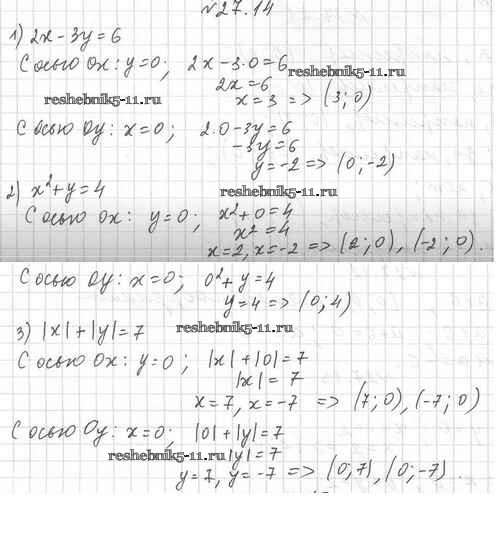 №27.14
1) 2x - 3y = 6
С осью Ox: y=0; 2x - 3·0 = 6
reshebnik5-11.ru
2x = 6
reshebnik5-11.ru
x = 3 => (3; 0)
С осью Oy: x=0; 2·0 - 3y = 6
-3y = 6
y = -2 => (0; -2)
2) x² + y = 4
reshebnik5-11.ru
С осью Ox: y=0; x² + 0 = 4
x² = 4
x = 2, x = -2 => (2; 0), (-2; 0).
С осью Oy: x=0; 0² + y = 4
y = 4 => (0; 4)
3) |x| + |y| = 7
reshebnik5-11.ru
С осью Ox: y=0; |x| + |0| = 7
|x| = 7
x = 7, x = -7 => (7; 0), (-7; 0)
С осью Oy: x=0; |0| + |y| = 7
reshebnik5-11.ru
|y| = 7
y = 7, y = -7 => (0; 7), (0; -7).